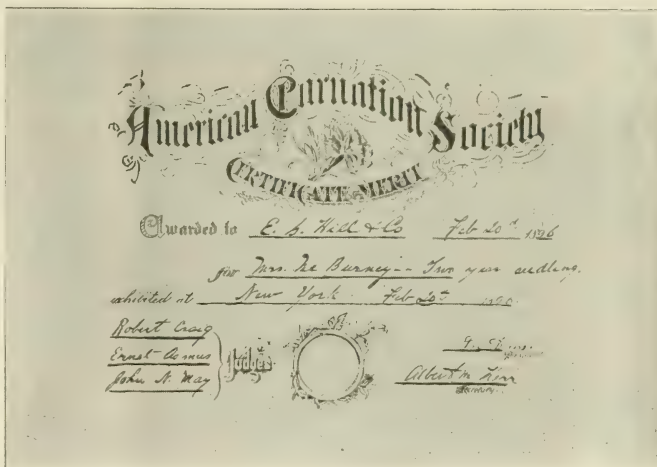 American Carnation Society
CERTIFICATE OF MERIT
Awarded to E. G. Hill & Co Feb 20th 1896
for Mrs. Mc Burney -- Two year seedling.
exhibited at New York Feb 20th
Robert Craig
Ernst Asmus
John N. May
Judges
Albert M. Herr